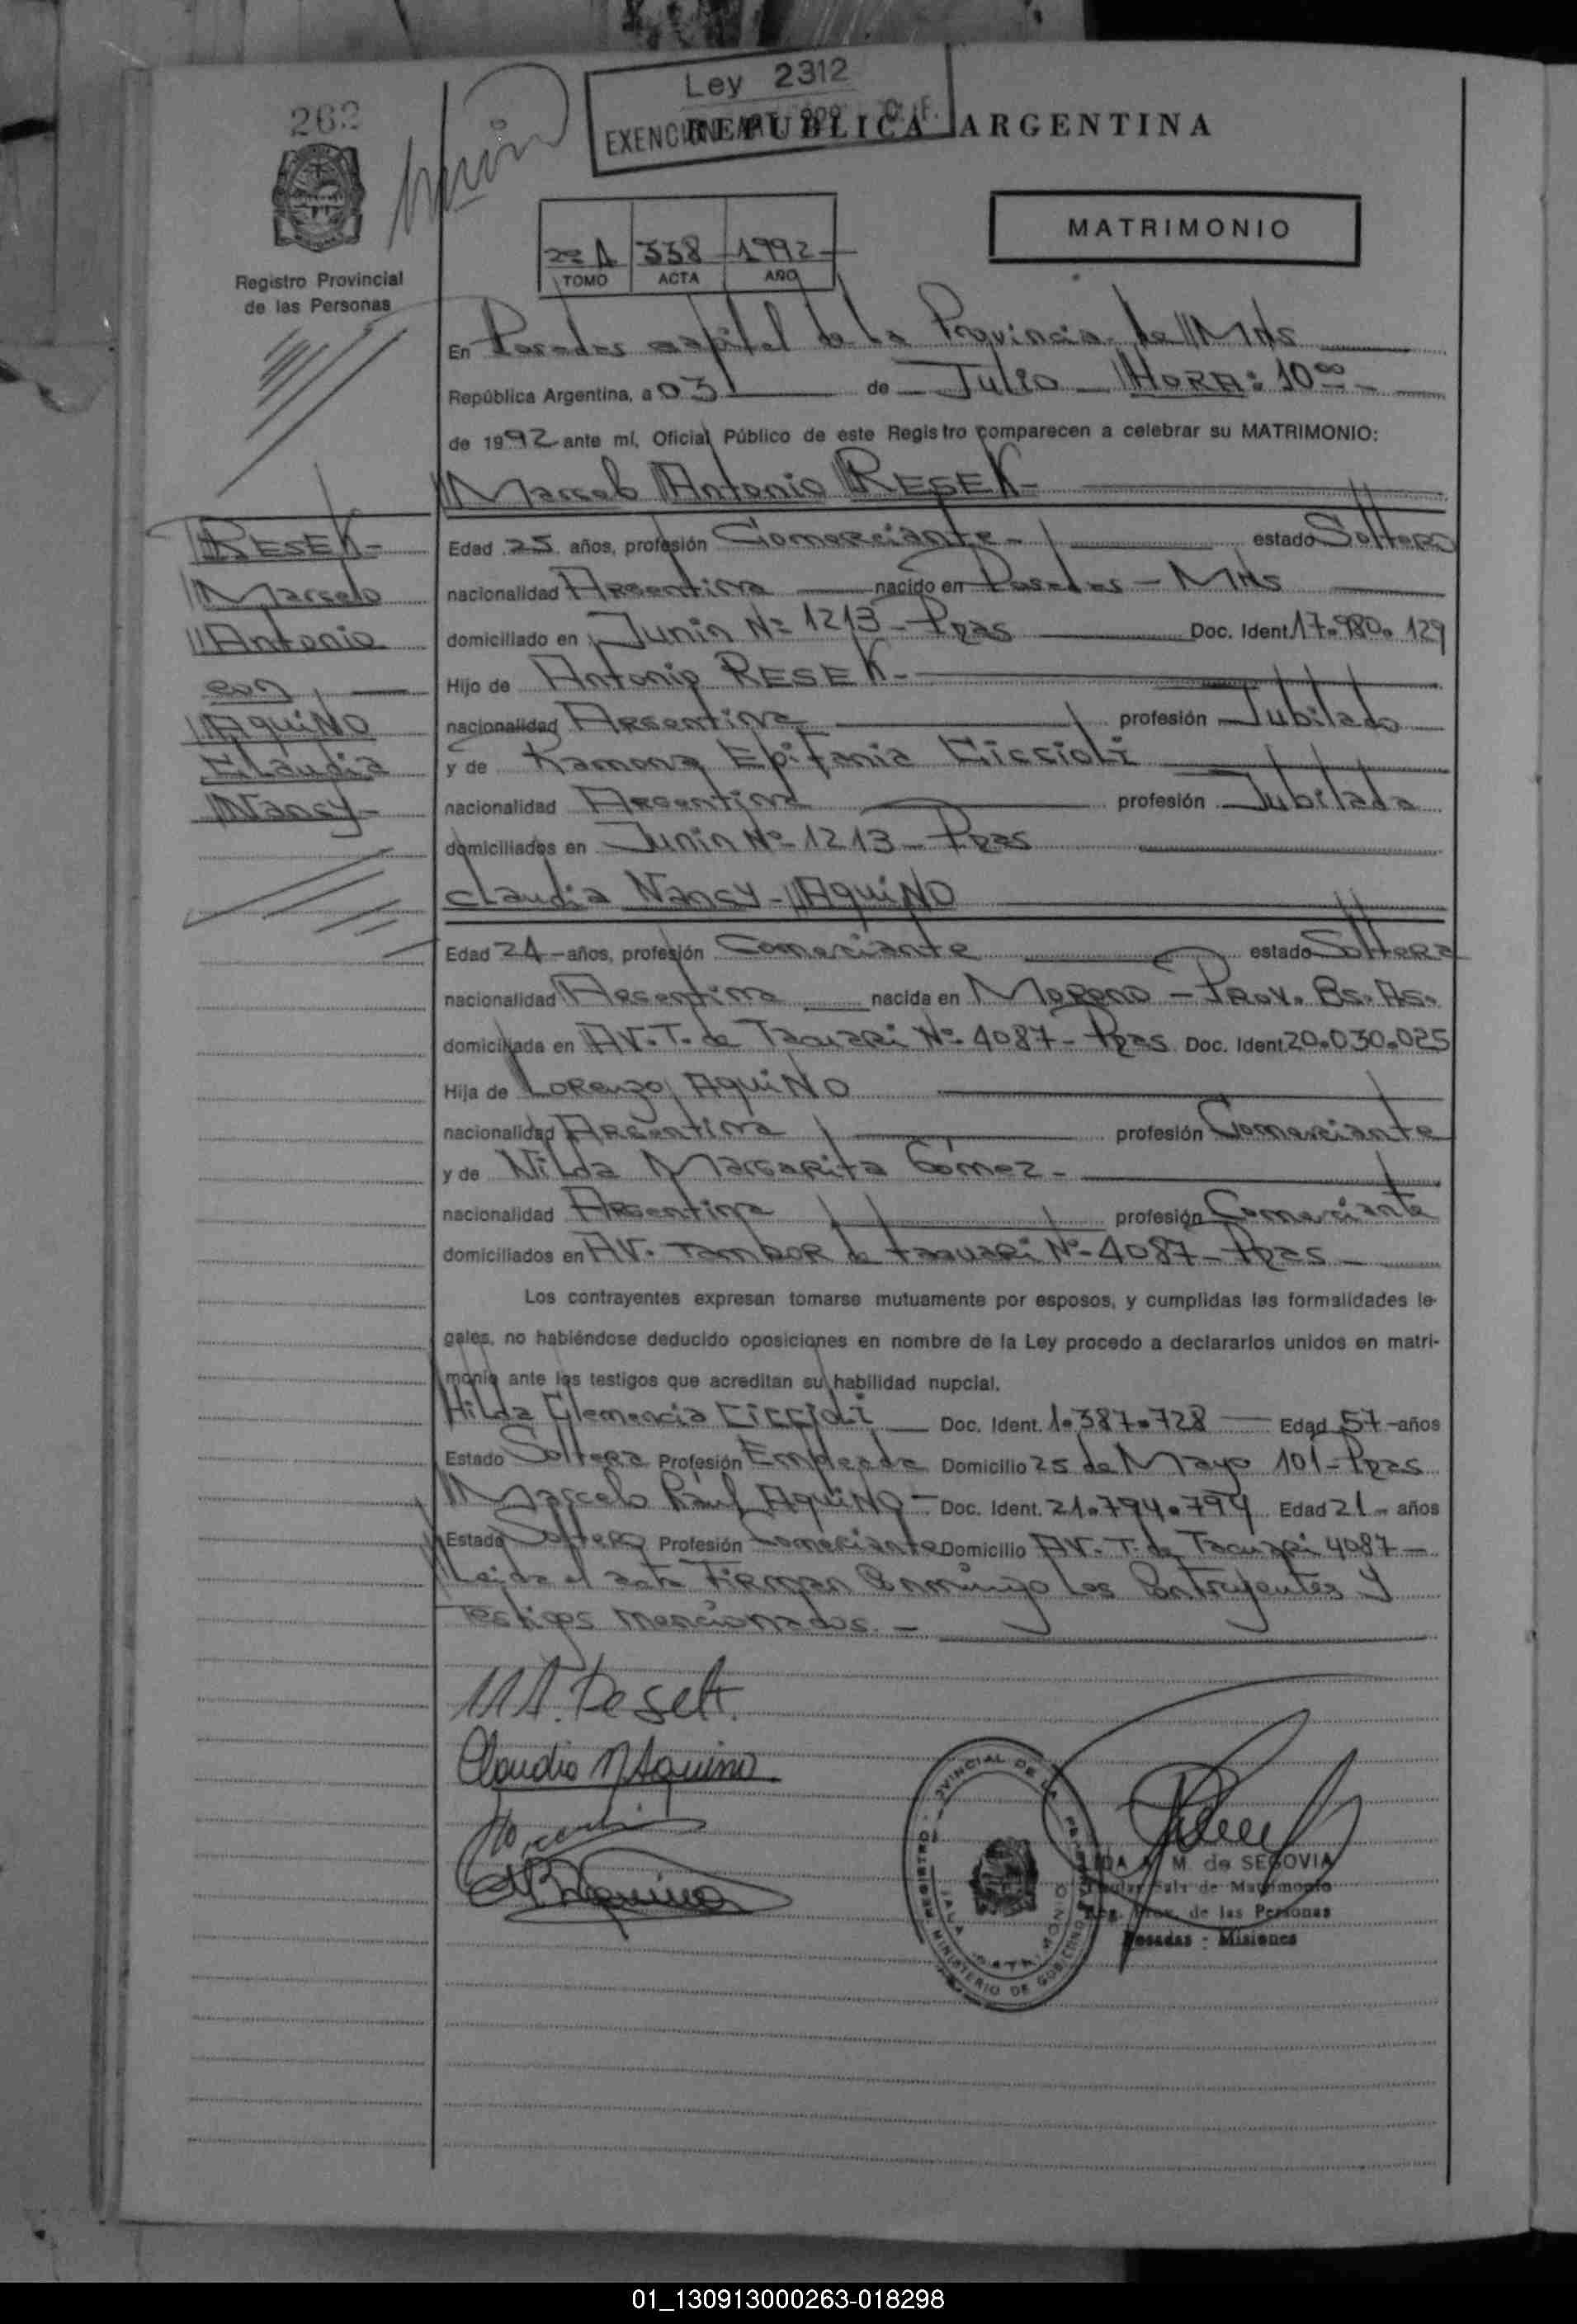 262
Ley 2312
REPUBLICA ARGENTINA
MATRIMONIO
338 1992
TOMO ACTA AÑO
Registro Provincial
de las Personas
En Posadas capital de la Provincia de Mnes
República Argentina, a 03 de Julio HORA: 10⁰⁰-
de 1992 ante mí, Oficial Público de este Registro comparecen a celebrar su MATRIMONIO:
Marcelo Antonio RESEK-
RESEK-
Marcelo
Antonio
con
AquiNO
Claudia
Nancy-
Edad 25 años, profesión Comerciante- estado Soltero
nacionalidad Argentina nacido en Posadas - Mnes
domiciliado en Junin Nº 1213 - Pdas Doc. Ident. 17.980.129
Hijo de Antonio RESEK-
nacionalidad Argentina profesión Jubilado
y de Ramona Epifania Ciccioli
nacionalidad Argentina profesión Jubilada
domiciliados en Junin Nº 1213 - Pdas
Claudia Nancy - AquiNO
Edad 24 - años, profesión Comerciante estado Soltera
nacionalidad Argentina nacida en Moreno - Prov. Bs. As.
domiciliada en AV. T. de Tacuari Nº 4087 - Pdas Doc. Ident. 20.030.025
Hija de Lorenzo AquiNO
nacionalidad Argentina profesión Comerciante
y de Nilda Margarita Gómez-
nacionalidad Argentina profesión Comerciante
domiciliados en AV. Tambor de Tacuari Nº 4087 - Pdas -
Los contrayentes expresan tomarse mutuamente por esposos, y cumplidas las formalidades le-
gales, no habiéndose deducido oposiciones en nombre de la Ley procedo a declararlos unidos en matri-
monio ante los testigos que acreditan su habilidad nupcial.
Hilda Clemencia Ciccioli Doc. Ident. 1.387.728 Edad 57 - años
Estado Soltera Profesión Empleada Domicilio 25 de Mayo 101 - Pdas
Marcelo Raúl AquiNO - Doc. Ident. 21.794.794 Edad 21 - años
Estado Soltero Profesión Comerciante Domicilio AV. T. de Tacuari 4087 -
Leida el acta Firman conmigo los Contrayentes y
Testigos mencionados. -
M A. Resek
Claudia N Aquino
M. de SEGOVIA
de Matrimonio
Reg. Prov. de las Personas
Posadas - Misiones
01_130913000263-018298